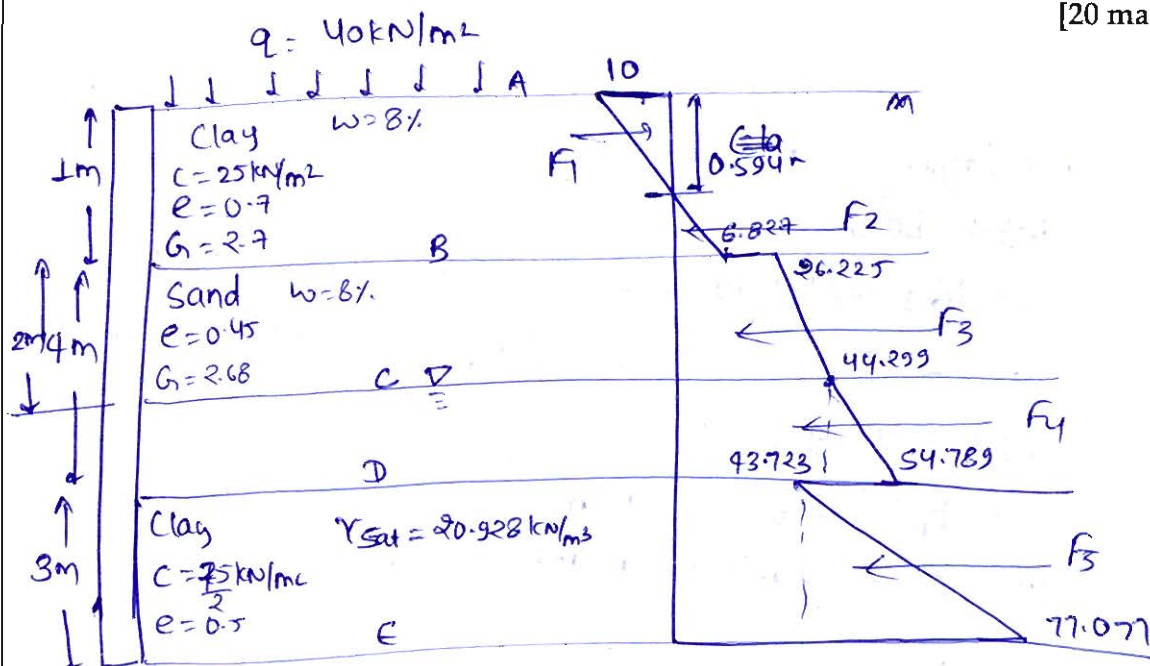 [20 ma
q = 40kN/m2
A
10
1m
Clay w=8%
C=25kN/m2
e=0.7
G=2.7
F1
0.594m
6.827
F2
B
26.225
2m
4m
Sand w=8%
e=0.45
G=2.68
F3
44.299
C
F4
43.723
54.789
D
3m
Clay γsat = 20.928 kN/m3
e=0.5
F5
E
77.077